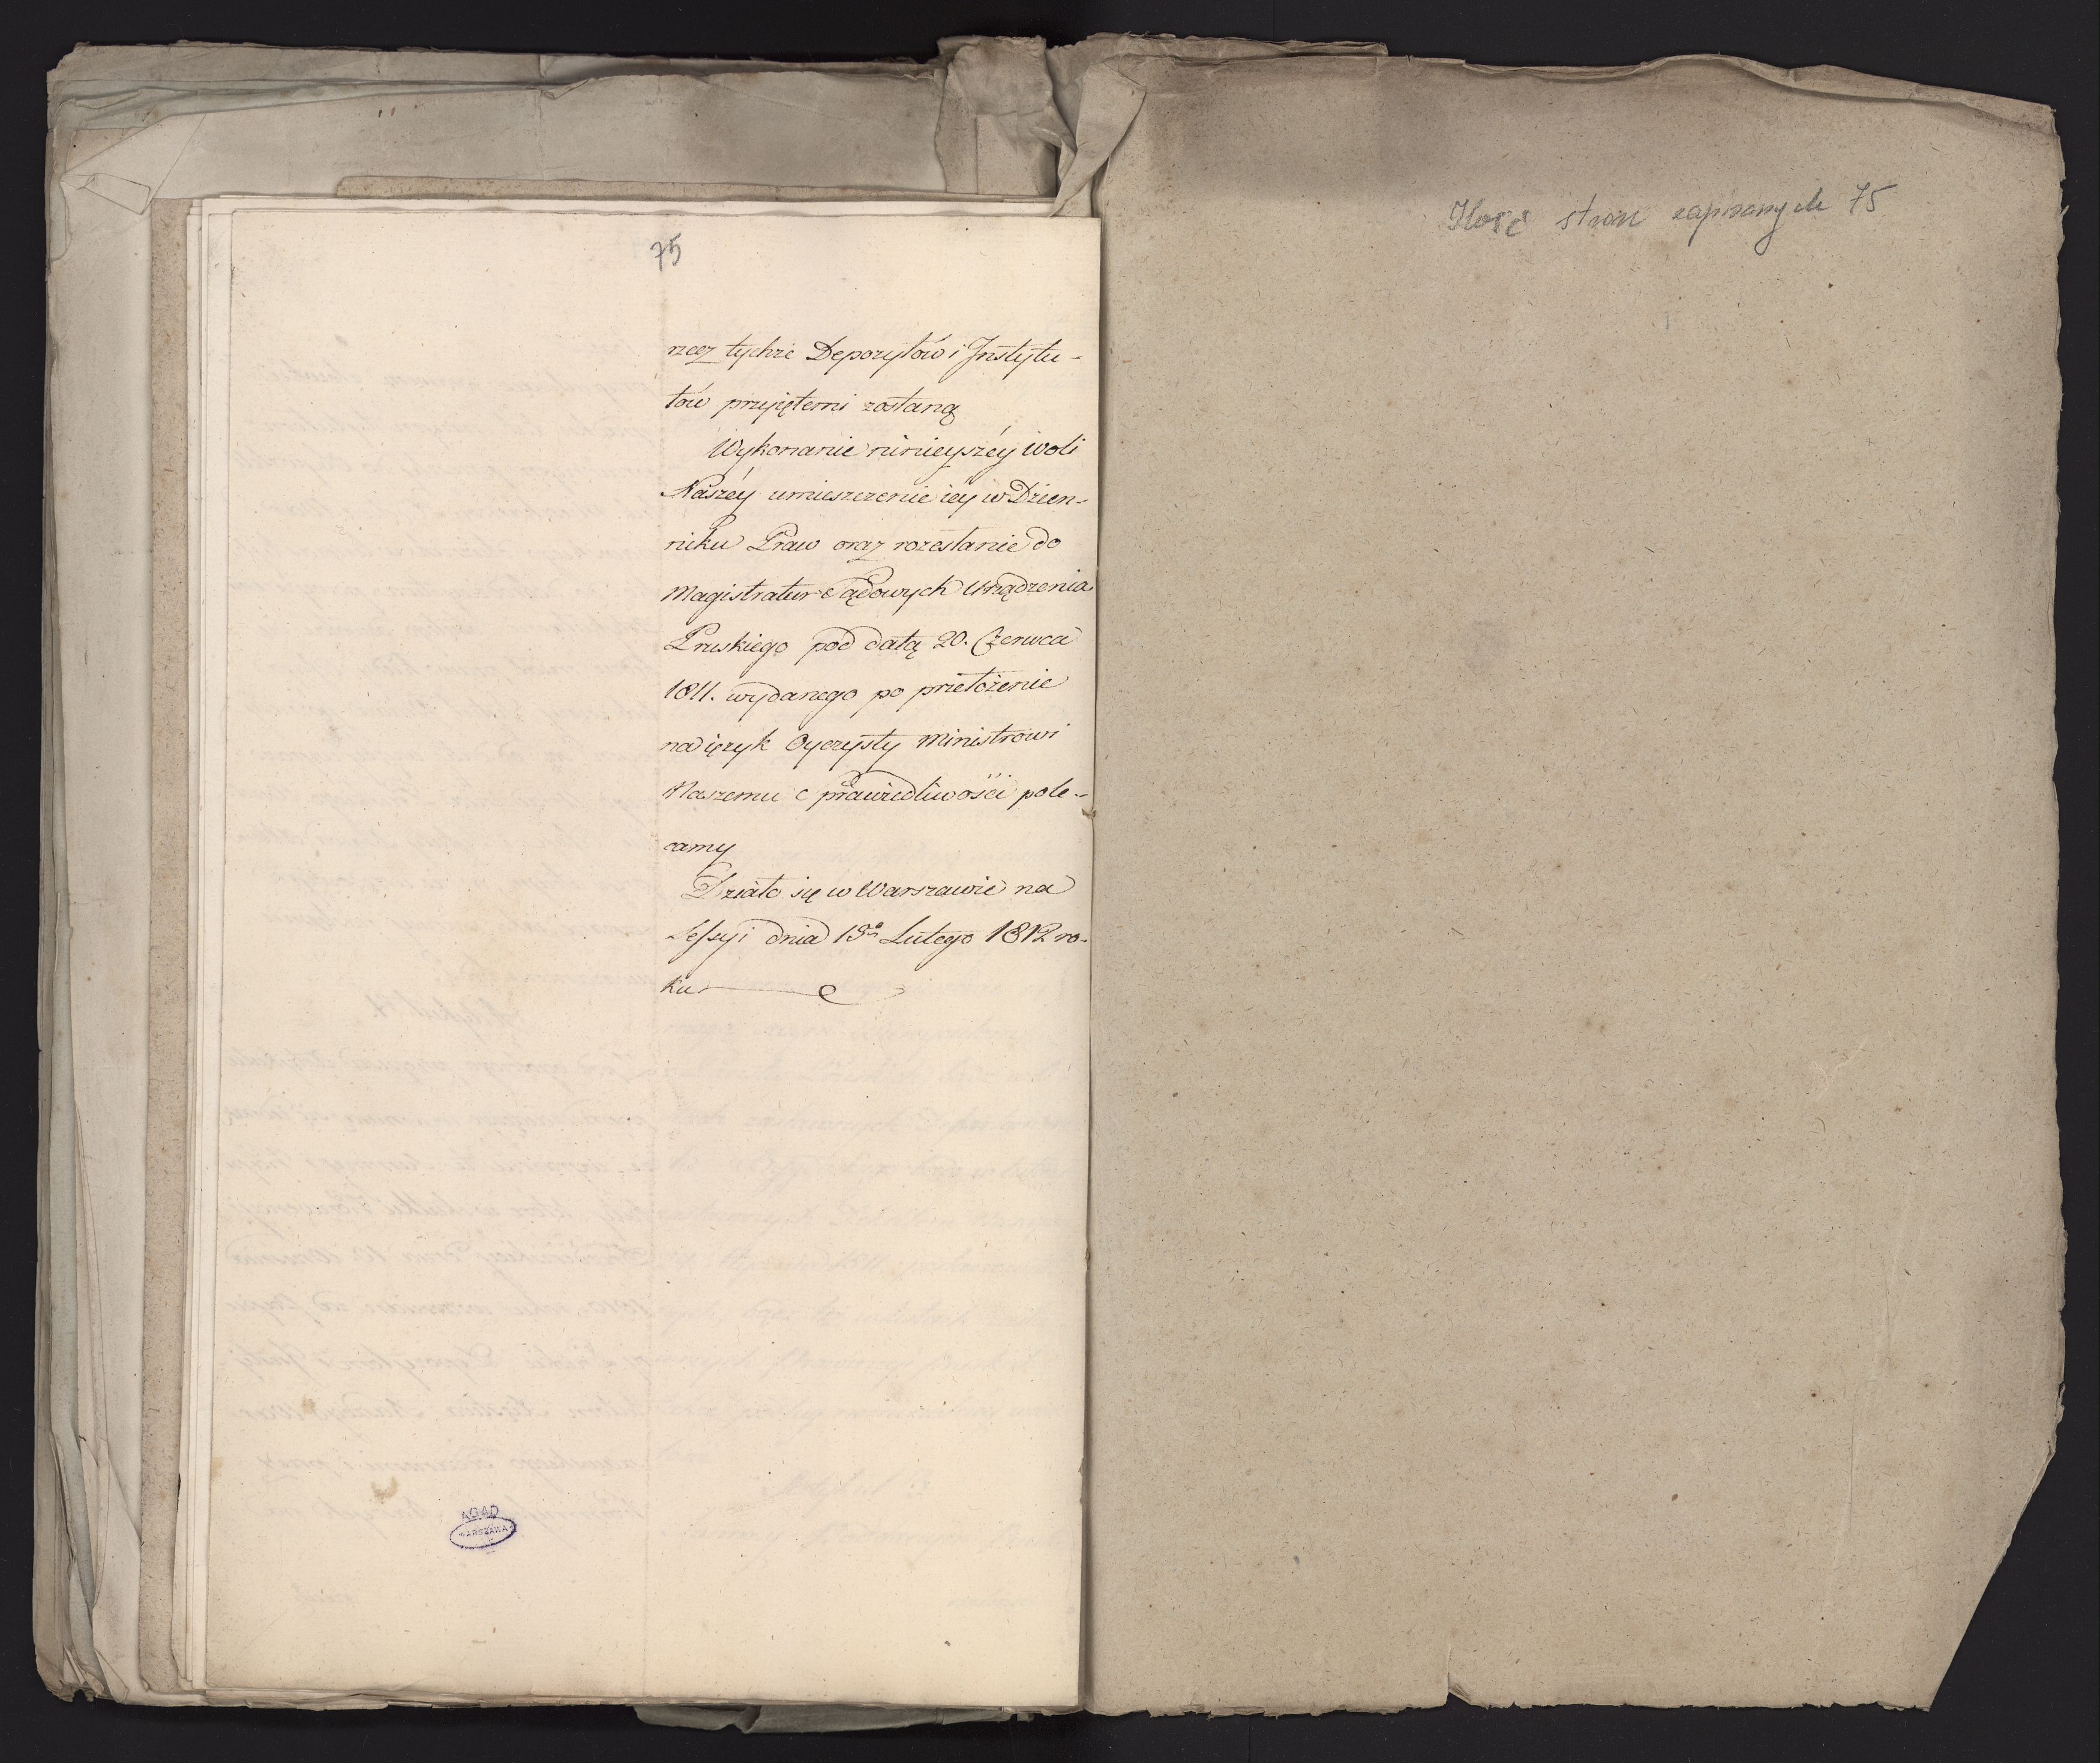 75
rzecz tychże Depozytów i Instytu-
tów przyiętemi zostaną
Wykonanie ninieyszéy woli
Naszéy umieszczenie iéy w Dzien-
niku Praw oraz rozesłanie do
Magistratur Sądowych Urządzenia
Pruskiego pod datą 20. Czerwca
1811. wydanego po przełożenie
na ięzyk Oyczysty Ministrowi
Naszemu Sprawiedliwości pole-
camy
Działo się w Warszawie na
Sessyi dnia Lutego 1812 ro-
ku
AGAD
WARSZAWA
Ilość stron zapisanych 75